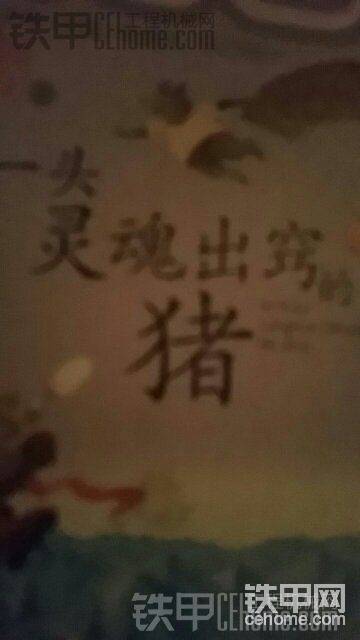 铁甲 工程机械网
CEhome.com
一头
灵魂出窍的
猪
铁甲 CEhome
铁甲网
cehome.com